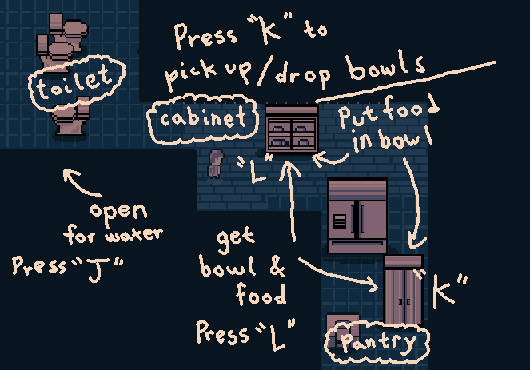 Press "K" to
pick up/drop bowls
toilet
cabinet
Put food
in bowl
"L"
open
for water
Press "J"
get
bowl &
food
Press "L"
"K"
Pantry